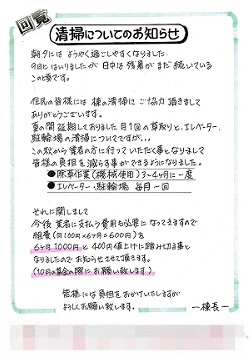 回覧
清掃についてのお知らせ
朝夕には ようやく過ごしやすくなりました。
9月に はいりましたが 日中は 残暑が まだ 続いている
この頃です。
住民の皆様には 棟の清掃に ご協力 頂きまして
ありがとうございます。
夏の間 延期しておりました 月1回の 草取りと、エレベーター、
駐輪場の 清掃についてですが、、
この秋から 業者の方に 行って いただく事となりまして
皆様の負担を 減らす事が できるようになりました。
●除草作業(機械使用) 3~4ヶ月に一度
●エレベーター、駐輪場 毎月一回
それに関しまして
今後 業者に支払う費用も必要に なってきますので
(月100円×6ヶ月=600円)を
6ヶ月 1000円と 400円値上げに踏み切る事と
なりましたので お知らせ させて頂きます。
(10月の集金の際に お願い致します)
皆様には 負担を おかけいたしますが
よろしくお願い 致します。
ー棟長ー